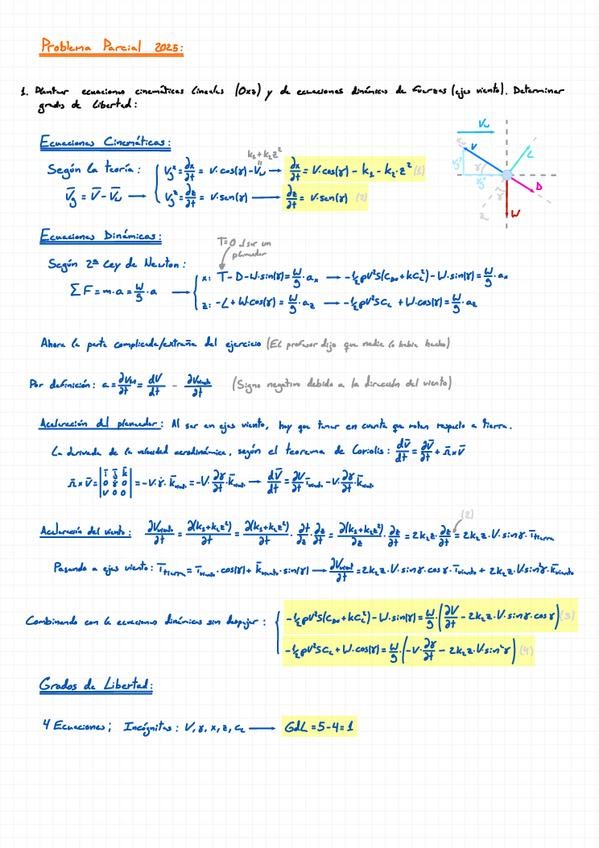 Problema Parcial 2025:
1. Plantear ecuaciones cinemáticas lineales (Oxz) y de ecuaciones dinámicas de fuerzas (ejes viento). Determinar
grados de libertad:
Ecuaciones Cinemáticas:
k₁+k₂z²
Según la teoría: { Vgˣ = ∂x/∂t = V·cos(γ) - Vw → ∂x/∂t = V·cos(γ) - k₁ - k₂·z² (1)
V̄g = V̄ - V̄w → Vgᶻ = ∂z/∂t = V·sen(γ) → ∂z/∂t = V·sin(γ) (2)
Vw
V
L
D
W
Ecuaciones Dinámicas:
T=0 al ser un
planeador
Según 2ª Ley de Newton: { x: T - D - W·sin(γ) = W/g·aₓ → -½ρV²S(C_D0+kC_L²) - W·sin(γ) = W/g·aₓ
ΣF = m·a = W/g·a → z: -L + W·cos(γ) = W/g·a_z → -½ρV²SC_L + W·cos(γ) = W/g·a_z
Ahora la parte complicada/extraña del ejercicio (El profesor dijo que nadie lo había hecho)
Por definición: a = ∂V/∂t = dV/dt - ∂Vviento/∂t (Signo negativo debido a la dirección del viento)
Aceleración del planeador: Al ser en ejes viento, hay que tener en cuenta que rotan respecto a tierra.
La derivada de la velocidad aerodinámica, según el teorema de Coriolis: dV̄/dt = ∂V̄/∂t + n̄×V̄
n̄×V̄ = |ī j̄ k̄; 0 γ̇ 0; V 0 0| = -V·γ̇·k̄viento = -V·∂γ/∂t·k̄viento → dV̄/dt = ∂V/∂t īviento - V·∂γ/∂t·k̄viento
(2)
Aceleración del viento: ∂Vviento/∂t = ∂(k₁+k₂z²)/∂t = ∂(k₁+k₂z²)/∂t · ∂t/∂z · ∂z/∂t = ∂(k₁+k₂z²)/∂z · ∂z/∂t = 2k₂z·∂z/∂t = 2k₂z·V·sinγ·ītierra
Pasando a ejes viento: ītierra = īviento·cos(γ) + k̄viento·sin(γ) → ∂Vviento/∂t = 2k₂z·V·sinγ·cosγ·īviento + 2k₂z·V·sin²γ·k̄viento
Combinando con la ecuaciones dinámicas sin despejar: { -½ρV²S(C_D0+kC_L²) - W·sin(γ) = W/g·(∂V/∂t - 2k₂z·V·sinγ·cosγ) (3)
-½ρV²SC_L + W·cos(γ) = W/g·(-V·∂γ/∂t - 2k₂z·V·sin²γ) (4)
Grados de Libertad:
4 Ecuaciones; Incógnitas: V, γ, x, z, C_L → GdL = 5-4 = 1